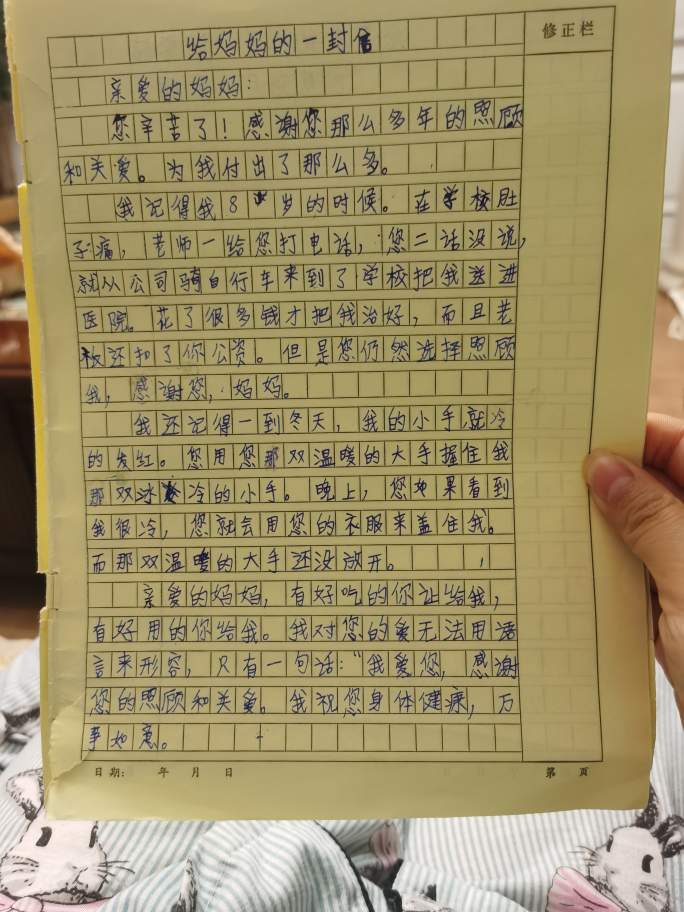 给妈妈的一封信
修正栏
亲爱的妈妈：
您辛苦了！感谢您那么多年的照顾
和关爱。为我付出了那么多。
我记得我8岁的时候。在学校肚
子痛，老师一给您打电话，您二话没说，
就从公司骑自行车来到了学校把我送进
医院。花了很多钱才把我治好，而且老
板还扣了你公资。但是您仍然选择照顾
我，感谢您，妈妈。
我还记得一到冬天，我的小手就冷
的发红。您用您那双温暖的大手握住我
那双冰冷的小手。晚上，您如果看到
我很冷，您就会用您的衣服来盖住我。
而那双温暖的大手还没放开。
亲爱的妈妈，有好吃的你让给我，
有好用的你给我。我对您的爱无法用话
言来形容，只有一句话：“我爱您，感谢
您的照顾和关爱。我祝您身体健康，万
事如意。
日期： 年 月 日 第 页